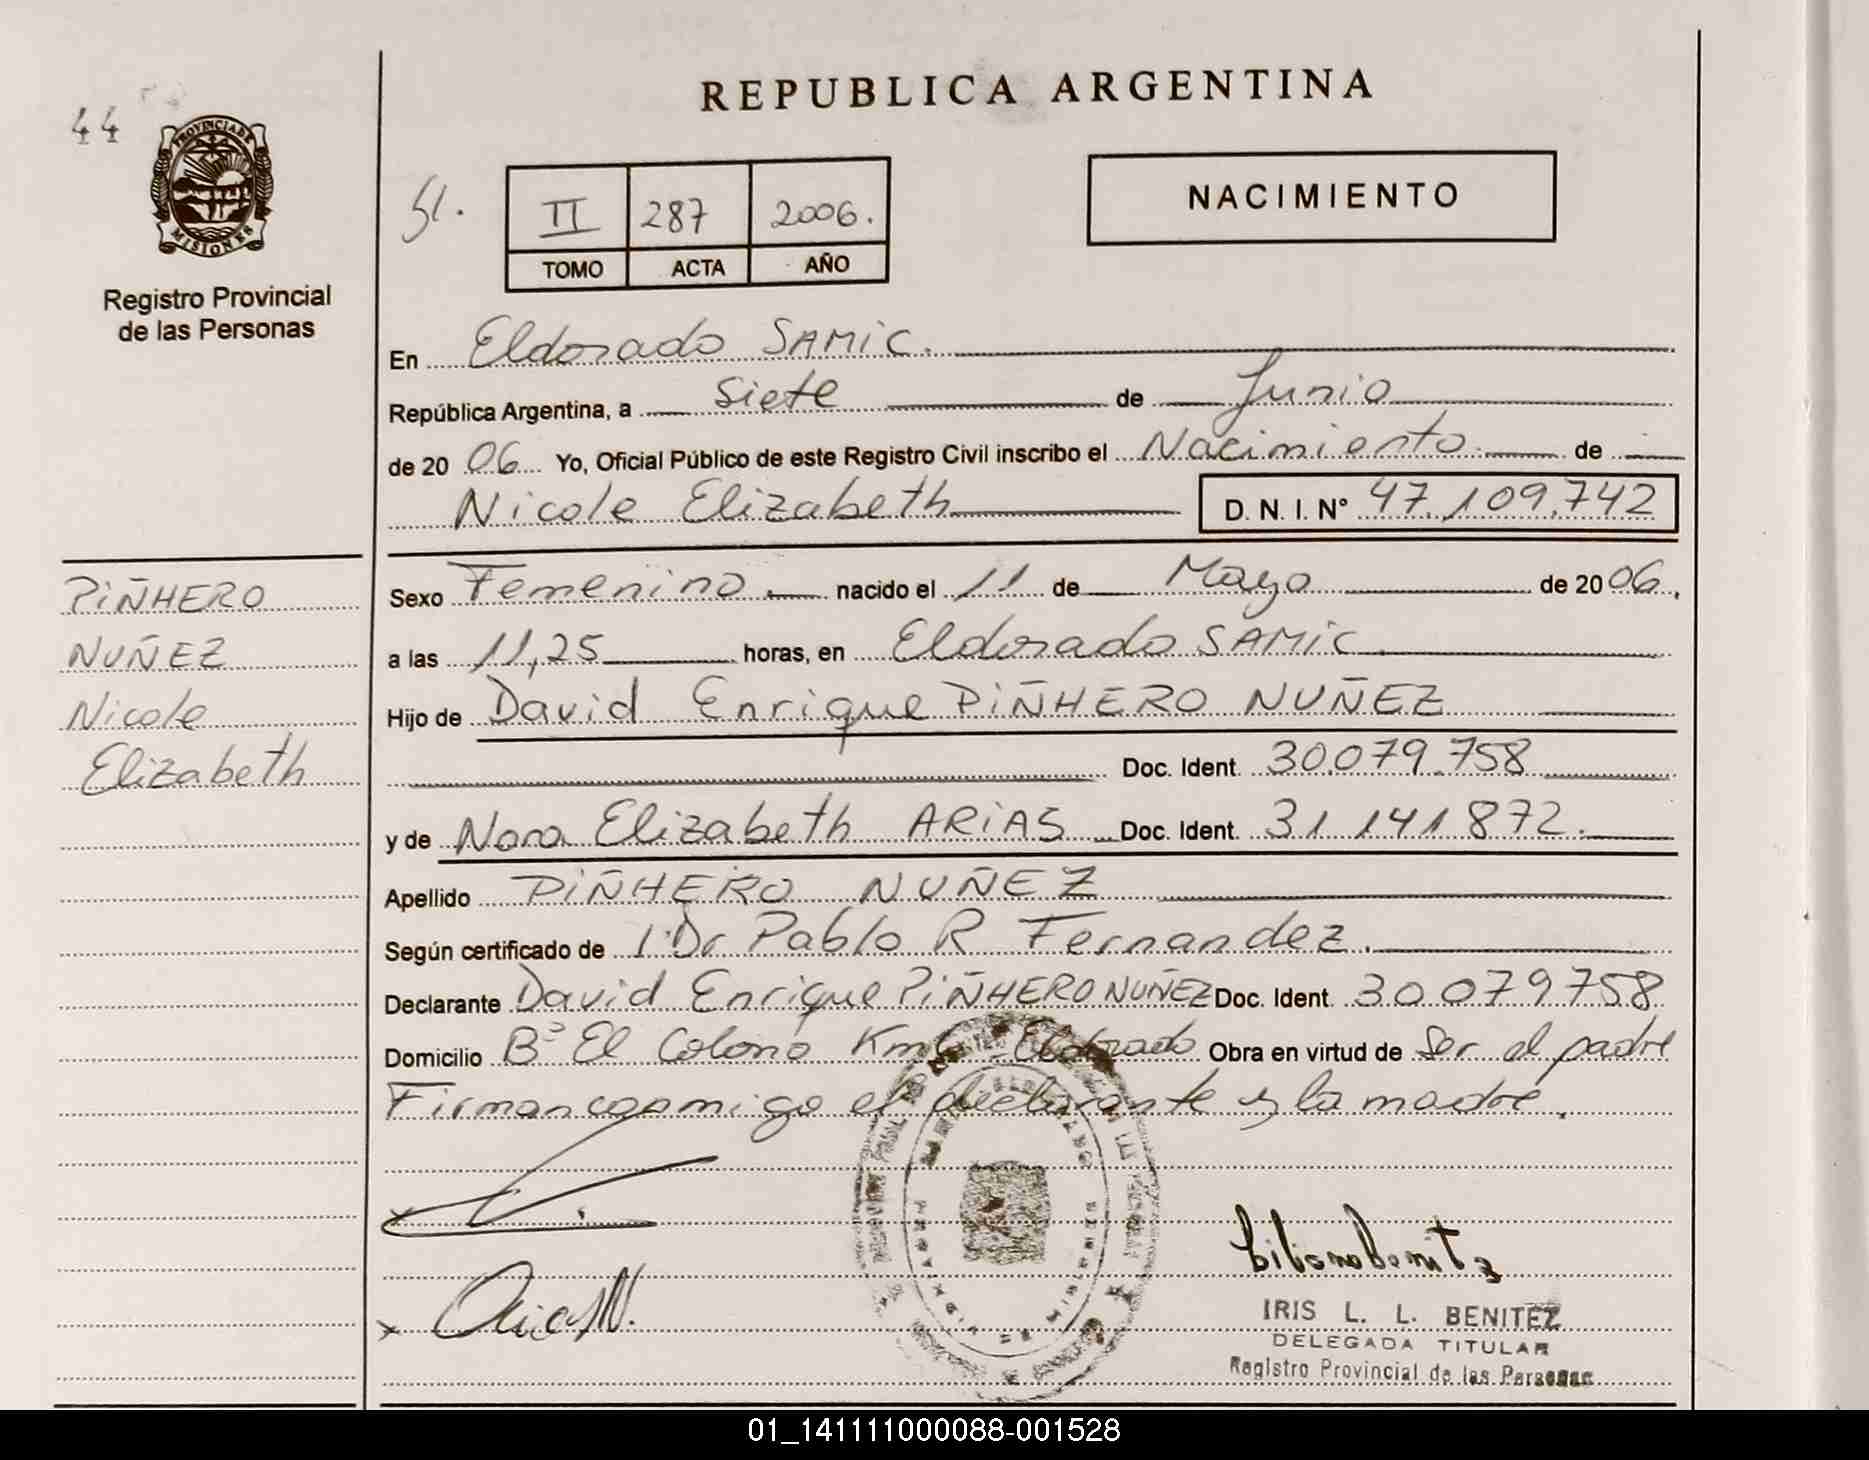 44
PROVINCIA DE
MISIONES
Registro Provincial
de las Personas
REPUBLICA ARGENTINA
II 287 2006.
TOMO ACTA AÑO
NACIMIENTO
En Eldorado SAMiC.
República Argentina, a siete de Junio
de 20 06 Yo, Oficial Público de este Registro Civil inscribo el Nacimiento de
Nicole Elizabeth D. N. I. N° 47.109.742
PiÑHERO
NUÑEZ
Nicole
Elizabeth
Sexo Femenino nacido el 11 de Mayo de 20 06.
a las 11,25 horas, en Eldorado SAMiC
Hijo de David Enrique PiÑHERO NUÑEZ
Doc. Ident. 30.079.758
y de Nora Elizabeth ARiAS Doc. Ident. 31 141 872.
Apellido PiÑHERO NUÑEZ
Según certificado de Dr Pablo R Fernandez.
Declarante David Enrique PiÑHERO NUÑEZ Doc. Ident. 30079758
Domicilio B° El Colono Km Eldorado Obra en virtud de Ser el padre
Firman conmigo el declarante y la madre.
Arias N.
IRIS L. L. BENITEZ
DELEGADA TITULAR
Registro Provincial de las Personas
01_141111000088-001528